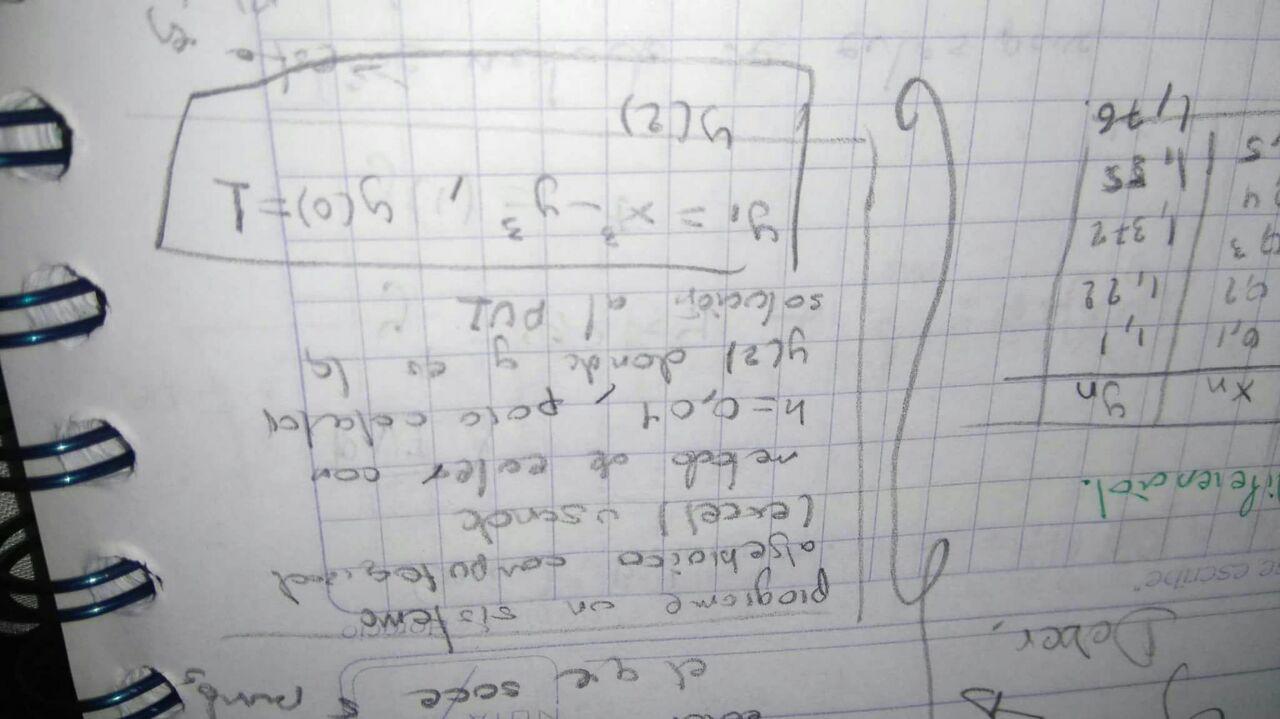 el que saque 5 puntos
Deber.
programe un sistema
algebraico computacional
(excel) usando
metodo de euler con
h=0,01, para calcular
y(2) donde y es la
solución al PVI
y' = x³ - y³ , y(0)=1
y(2)
diferencial.
xn | yn
0,1 | 1,1
0,2 | 1,22
1,372
1,55
1,76